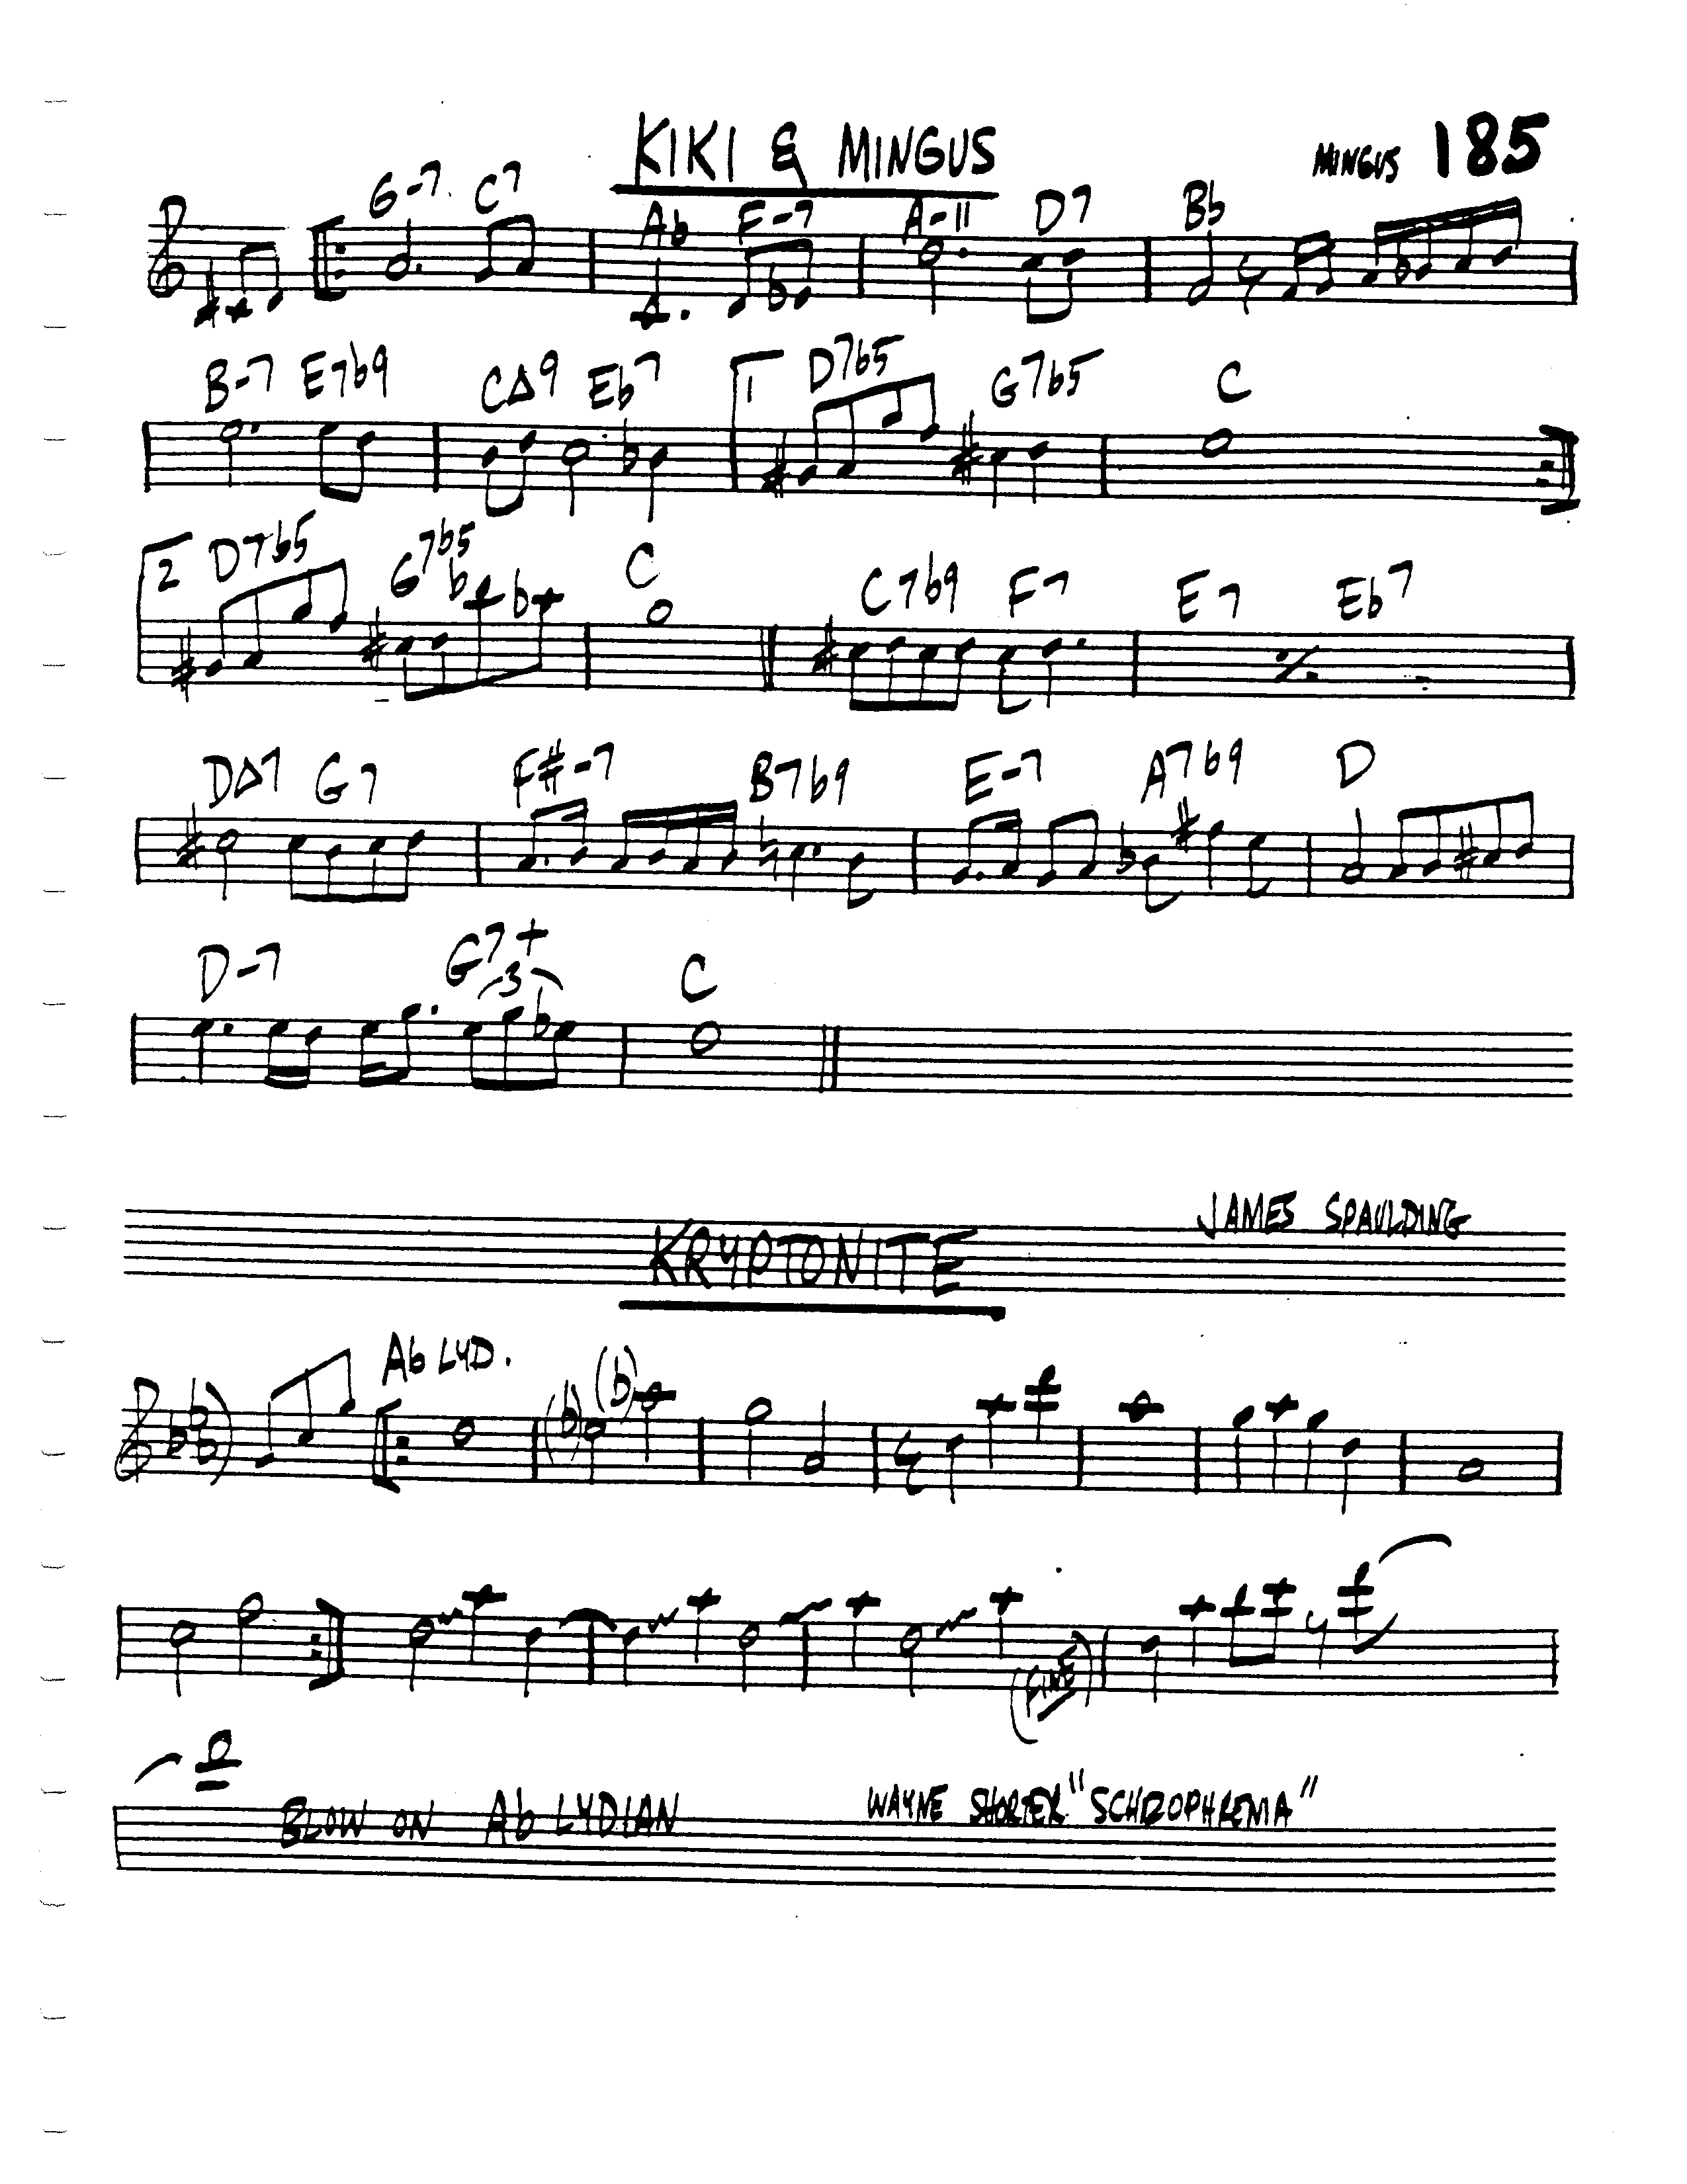 KIKI & MINGUS
MINGUS 185
G-7 C7 Ab F-7 A-11 D7 Bb
B-7 E7b9 CΔ9 Eb7 1 D7b5 G7b5 C
2 D7b5 G7b5 C C7b9 F7 E7 Eb7
DΔ7 G7 F#-7 B7b9 E-7 A7b9 D
D-7 G7+ C
3
JAMES SPAULDING
KRYPTONITE
Ab LYD.
(FINE)
BLOW ON Ab LYDIAN WAYNE SHORTER "SCHIZOPHRENIA"